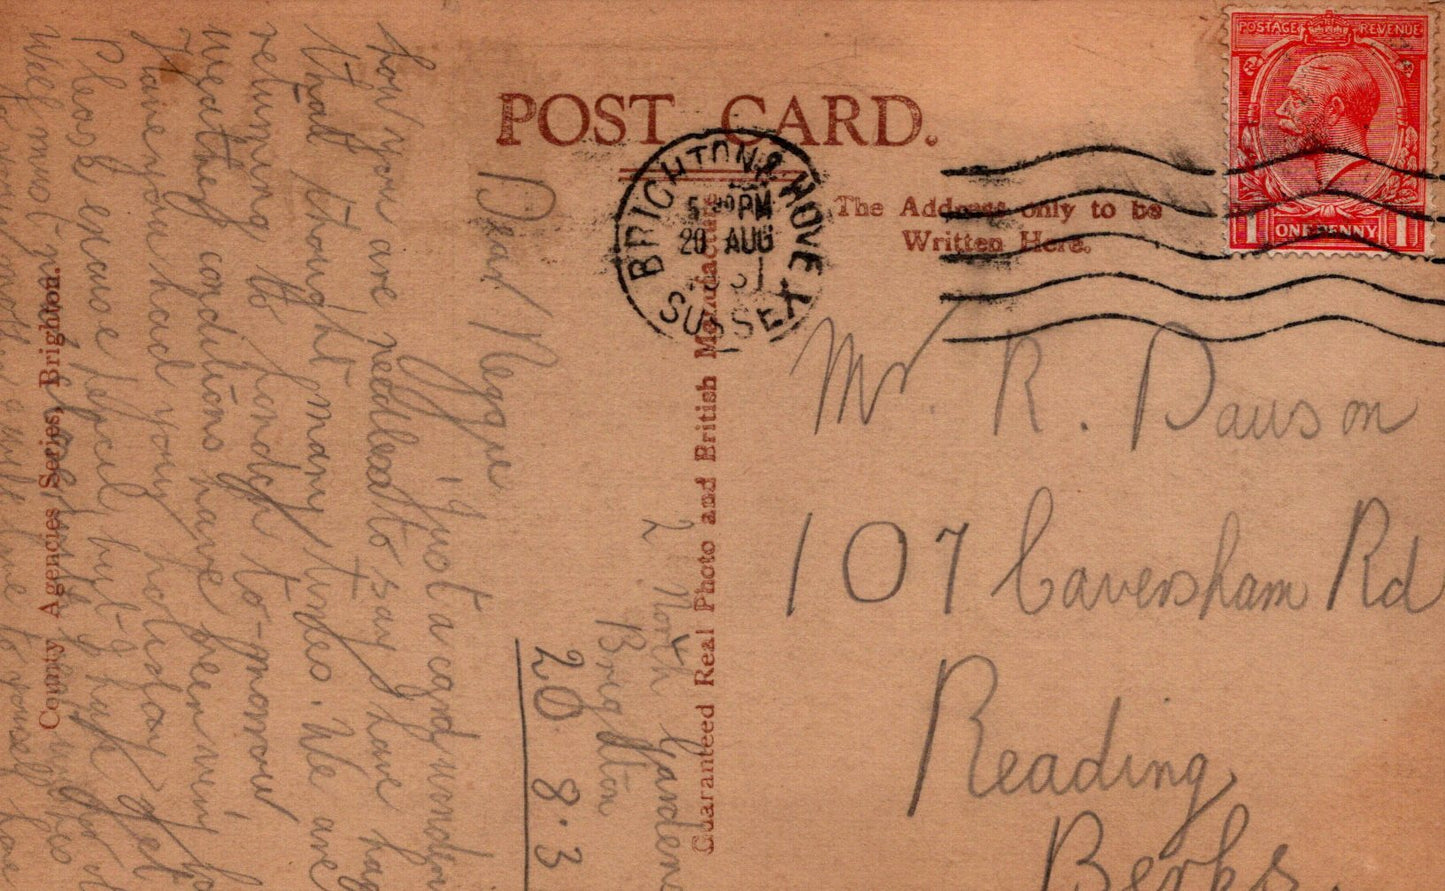 POST CARD.
The Address only to be
Written Here.
POSTAGE REVENUE
1 ONE PENNY 1
BRIGHTON & HOVE
5 PM
20 AUG
31
SUSSEX
Mr. R. Dawson
107 Caversham Rd
Reading
Berks.
Guaranteed Real Photo and British Manufacture
County Agencies Series, Brighton.
2 North Gardens
Brighton
20.8.3
Dear Reggie
Just a card wondering
how you are needless to say have
that thought many times. We are
returning to London to-morrow
weather conditions have been very
Have you had your holiday yet
Please excuse pencil but I have